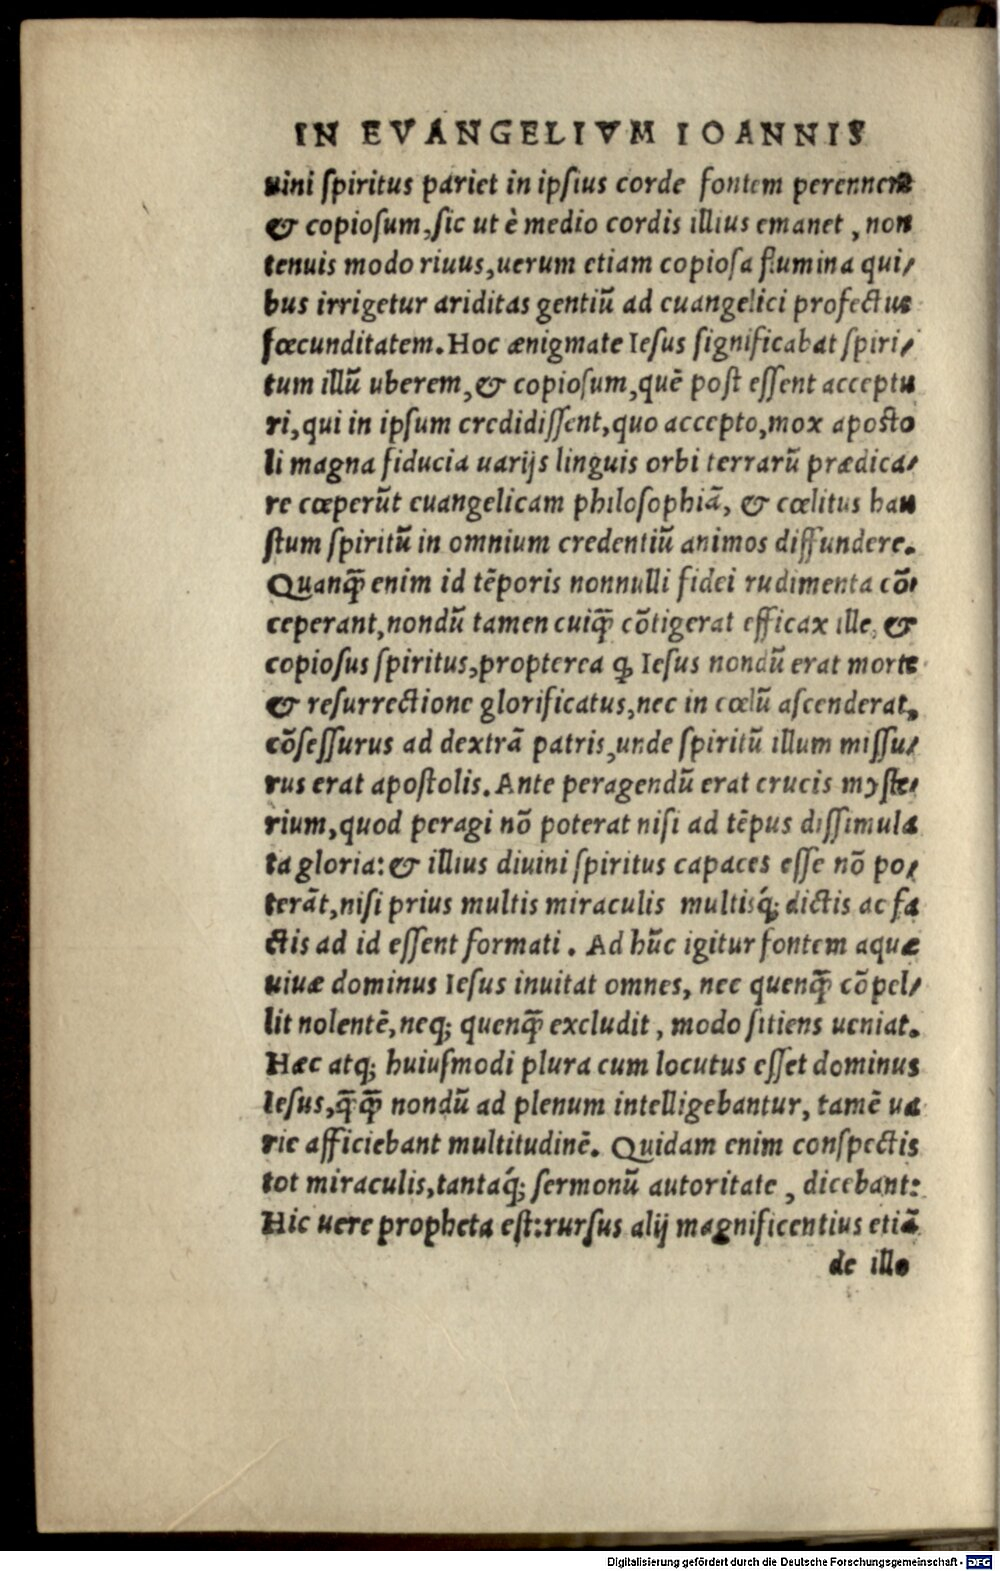 IN EVANGELIVM IOANNIS
uini spiritus pariet in ipsius corde fontem perennem
& copiosum, sic ut è medio cordis illius emanet, non
tenuis modo riuus, uerum etiam copiosa flumina qui/
bus irrigetur ariditas gentiū ad euangelici profectus
fœcunditatem. Hoc ænigmate Iesus significabat spiri/
tum illū uberem, & copiosum, quē post essent acceptu
ri, qui in ipsum credidissent, quo accepto, mox aposto
li magna fiducia uarijs linguis orbi terrarū prædica/
re cœperūt euangelicam philosophiā, & cœlitus hau
stum spiritū in omnium credentiū animos diffundere.
Quanq̄ enim id tēporis nonnulli fidei rudimenta cō/
ceperant, nondū tamen cuiq̄ cōtigerat efficax ille, &
copiosus spiritus, propterea ꝙ Iesus nondū erat morte
& resurrectione glorificatus, nec in cœlū ascenderat,
cōsessurus ad dextrā patris, unde spiritū illum missu/
rus erat apostolis. Ante peragendū erat crucis myste/
rium, quod peragi nō poterat nisi ad tēpus dissimula
ta gloria: & illius diuini spiritus capaces esse nō po/
terāt, nisi prius multis miraculis multisq́; dictis ac fa
ctis ad id essent formati. Ad hūc igitur fontem aquæ
uiuæ dominus Iesus inuitat omnes, nec quenq̄ cōpel/
lit nolentē, neq; quenq̄ excludit, modo sitiens ueniat.
Hæc atq; huiusmodi plura cum locutus esset dominus
Iesus, q̄q̄ nondū ad plenum intelligebantur, tamē ua
rie afficiebant multitudinē. Quidam enim conspectis
tot miraculis, tantaq́; sermonū autoritate, dicebant:
Hic uere propheta est: rursus alij magnificentius etiā
de illo
Digitalisierung gefördert durch die Deutsche Forschungsgemeinschaft - DFG